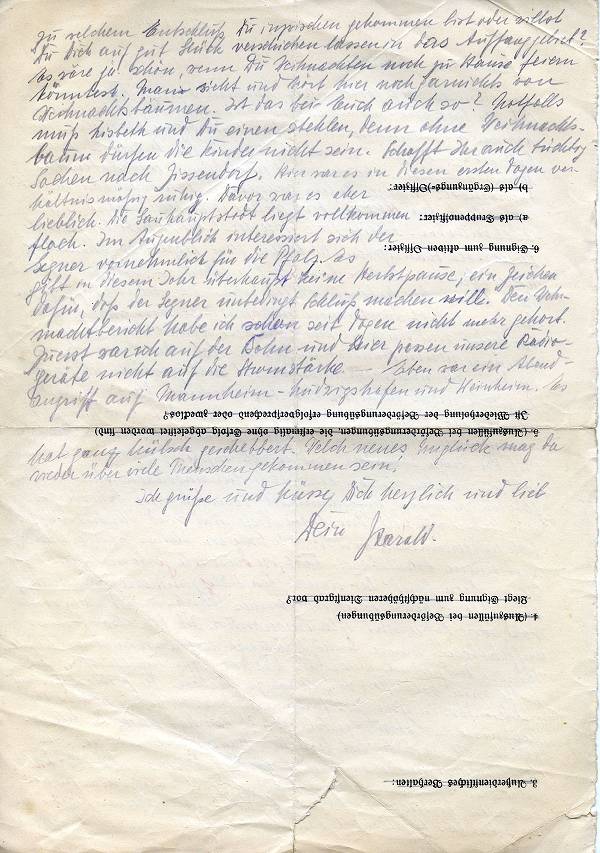 zu welchem Entschluß Du inzwischen gekommen bist oder willst
Du Dich auf gut Glück verschicken lassen in das Auffanggebiet?
Es wäre ja schön, wenn Du Weihnachten noch zu Hause feiern
könntest. Man sieht und hört hier noch garnichts von
Weihnachtsbäumen. Ist das bei Euch auch so? Notfalls
muß und Du einen stehlen, denn ohne Weihnachts-
baum dürfen die Kinder nicht sein. Schafft Ihr auch tüchtig
Sachen nach Hier war es in diesen ersten Tagen ver-
b) als (Ergänzungs-)Offizier:
hältnismäßig ruhig. Davor war es aber
lieblich. Die Gauhauptstadt liegt vollkommen
a) als Truppenoffizier:
flach. Im Augenblick interessiert sich der
6. Eignung zum aktiven Offizier:
Gegner vornehmlich für die Pfalz. Es
gibt in diesem Jahr überhaupt keine Herbstpause, ein Zeichen
dafür, daß der Gegner unbedingt Schluß machen will. Den Wehr-
machtbericht habe ich schon seit Tagen nicht mehr gehört.
Zuerst war ich auf der Bahn und hier passen unsere Radio-
geräte nicht auf die Stromstärke. — Eben war ein Abend-
angriff auf Mannheim-Ludwigshafen und Weinheim. Es
Ist Wiederholung der Beförderungsübung erfolgversprechend oder zwecklos?
5. (Auszufüllen bei Beförderungsübungen, die erstmalig ohne Erfolg abgeleistet worden sind)
hat ganz hübsch gescheppert. Welch neues Unglück mag da
wieder über viele Menschen gekommen sein.
Ich grüße und küsse Dich herzlich und lieb
Dein Harald.
Liegt Eignung zum nächsthöheren Dienstgrad vor?
4. (Auszufüllen bei Beförderungsübungen)
3. Außerdienstliches Verhalten: